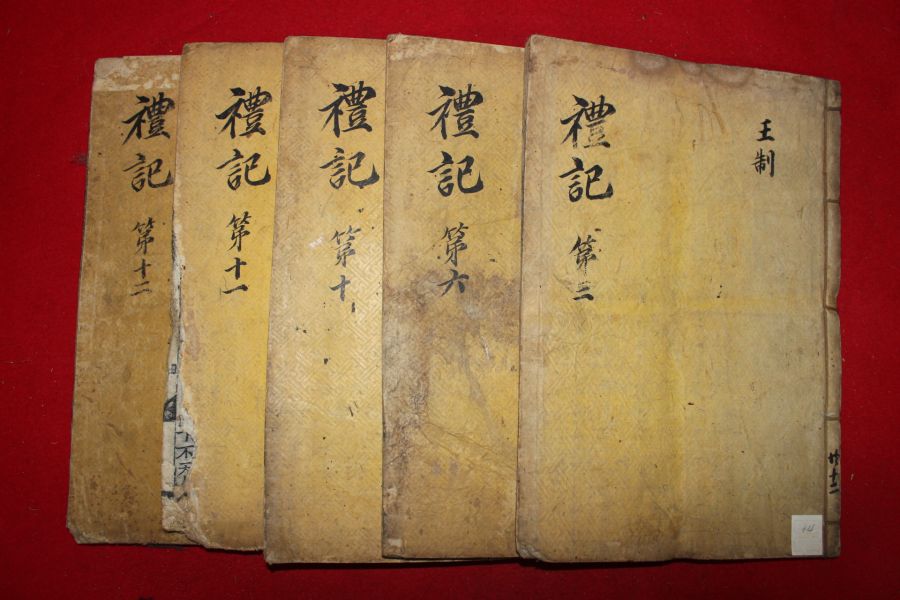 王制
禮記 第三
共十二
禮記 第六
禮記 第十
禮記 第十一
禮記 第十二